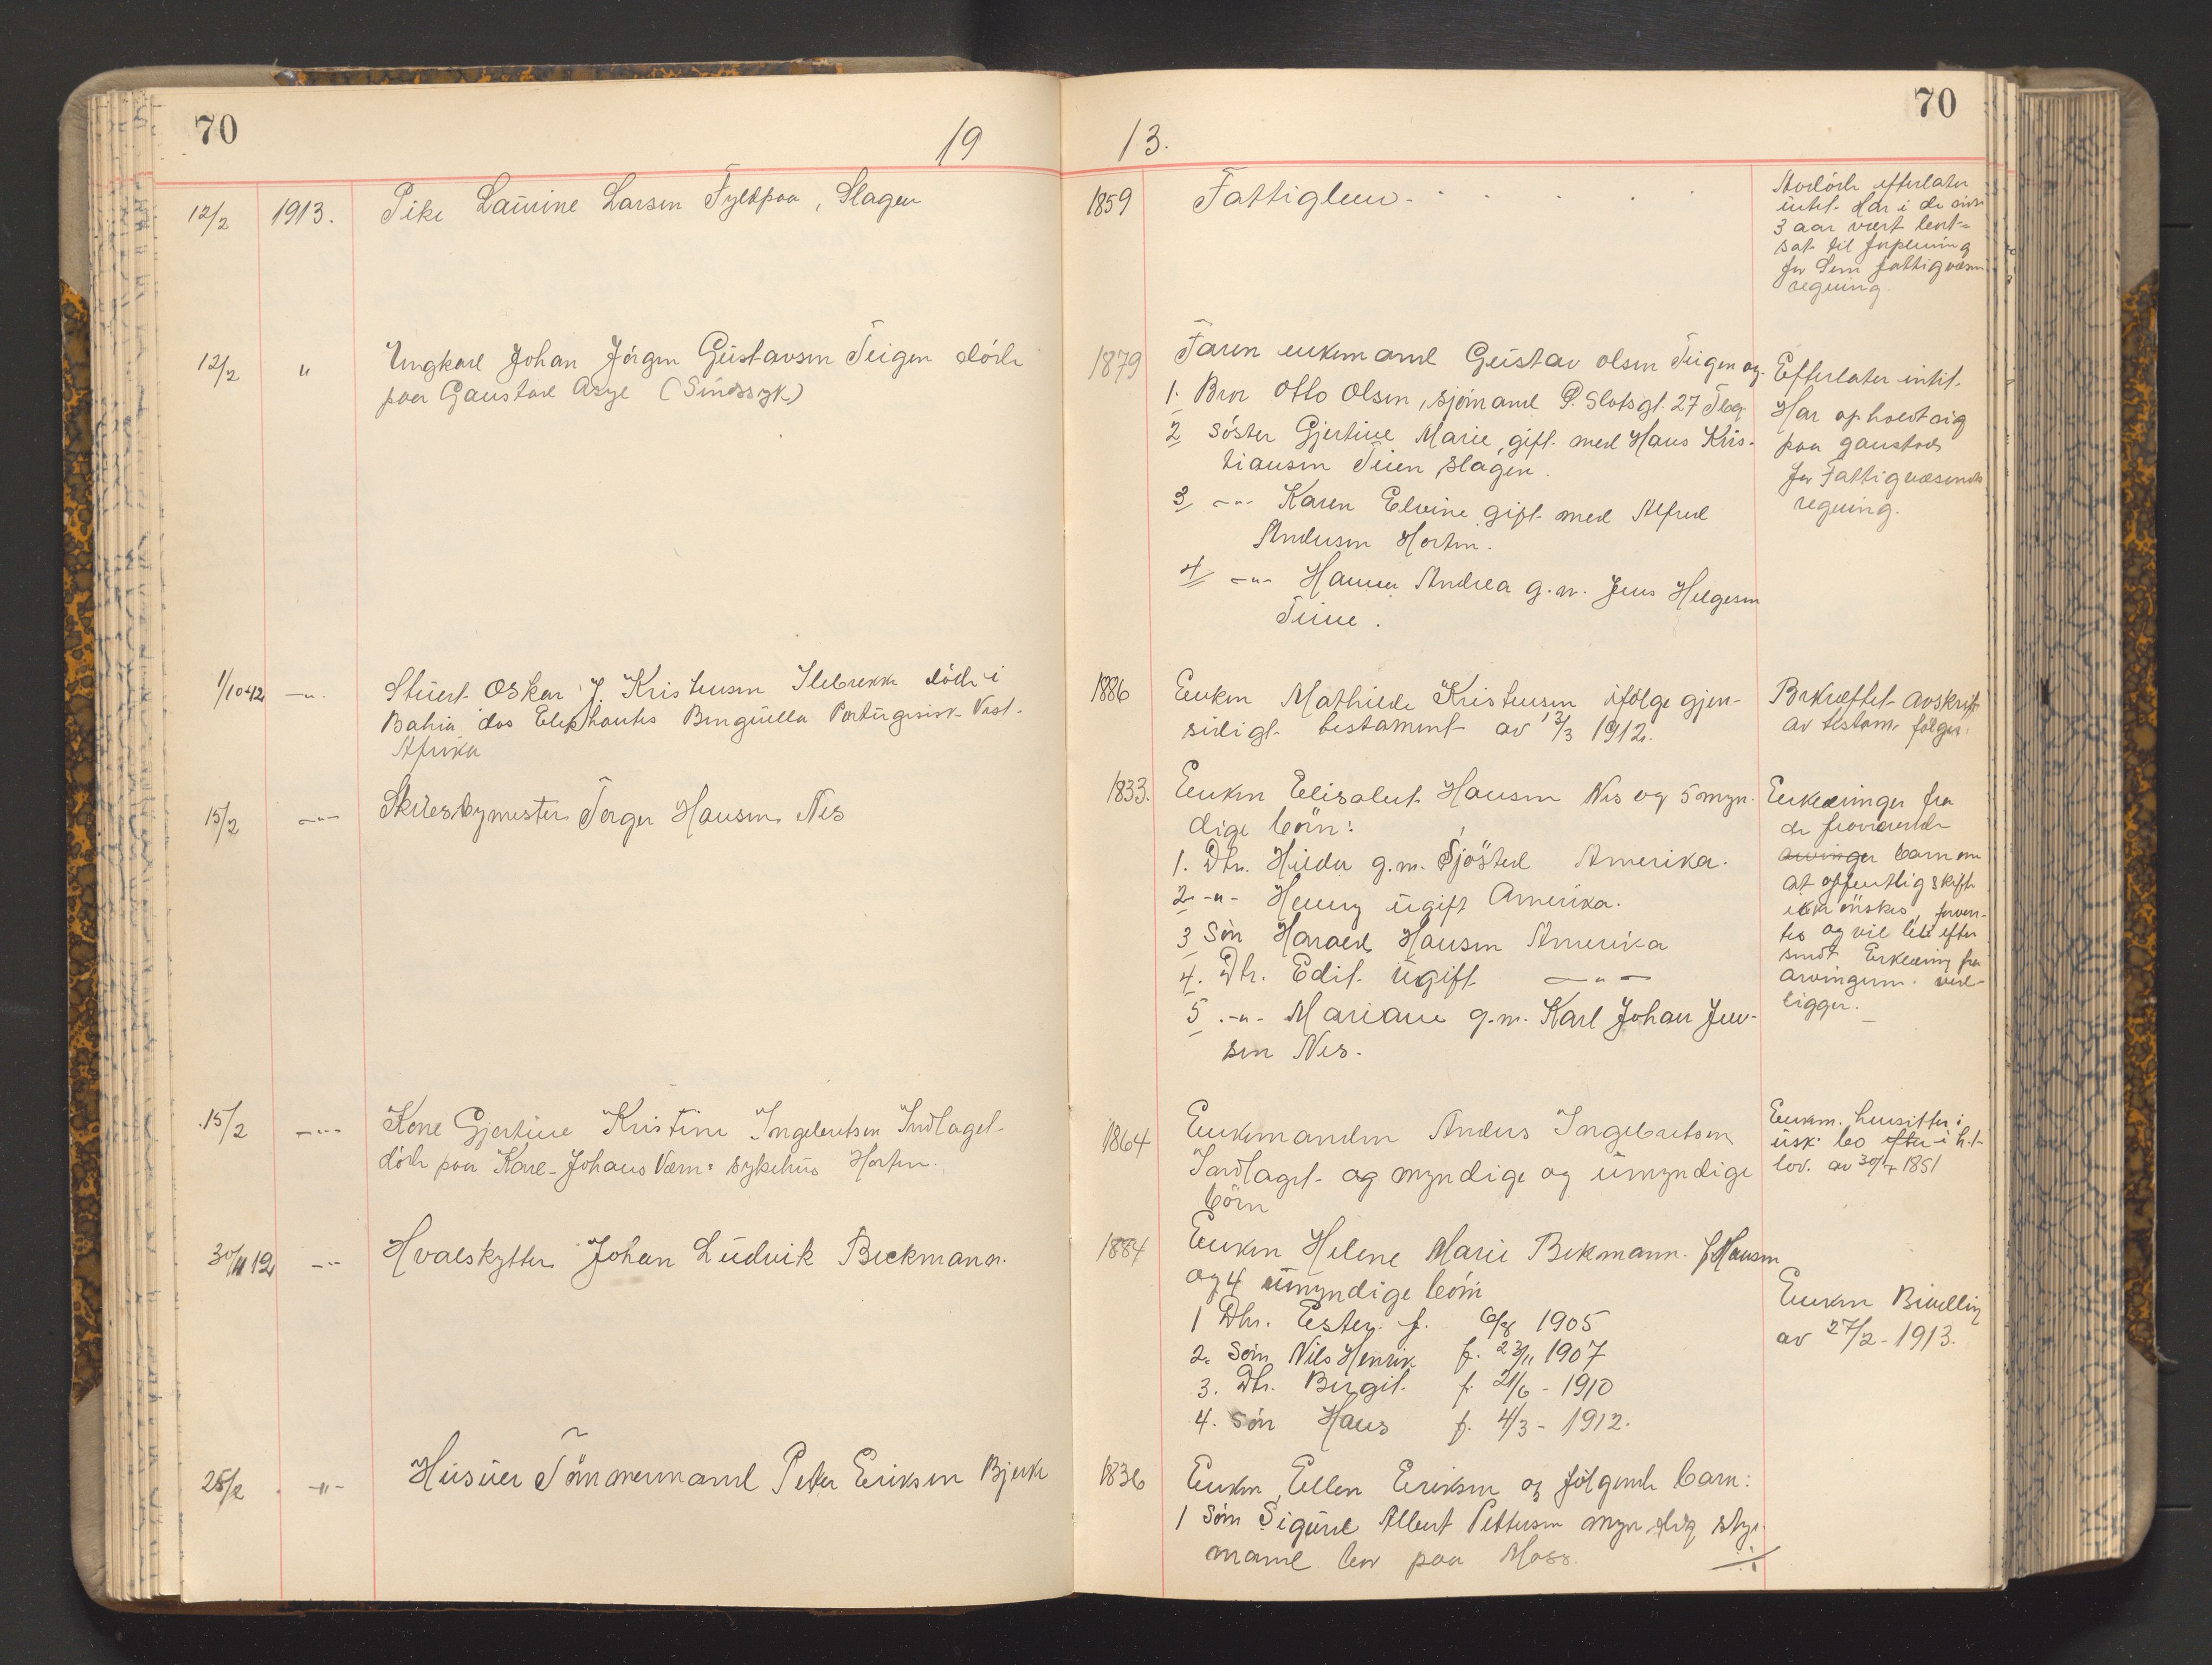 70
19
12/2 1913. Pike Laurine Larsen Fyldpaa, Slagen
12/2 " Ungkarl Johan Jörgen Gustavsen Teigen döde
paa Gaustad Asyl (Sindssyk)
1/10 12 -"- Stuert Oskar J. Kristensen Ilebrekke döde i
Bahia dos Elephantes Benguella Portugisisk Vest-
Afrika
15/2 -"- Skibsbymester Torger Hansen Nes
15/2 -"- Kone Gjertine Kristine Ingebretsen Indlaget
döde paa Karl-Johans Værn= sykehus Horten.
30/11 12 -"- Hvalskytter Johan Ludvik Beckmann.
25/2 -"- Husuer Tömmermand Peter Eriksen Bjerke
70
13.
1859 Fattiglem -
Avdöde efterlater
intet. Har i de sidste
3 aar vært bort=
sat til forpleining
for Sem fattigvæsens
regning.
1879 Faren enkemand Gustav Olsen Teigen og
1. Bror Otto Olsen, sjömand P. Slotsgt. 27 Tbg
2 Söster Gjertine Marie gift med Hans Kris-
tiansen Teien Slagen.
3 -"- Karen Elvine gift med Alfred
Andersen Horten.
4 -"- Hanna Andrea g.m. Jens Helgesen
Teine.
Efterlater intet.
Har opholdt sig
paa Gaustad
for Fattigvæsenets
regning.
1886 Enken Mathilde Kristensen ifölge gjen-
sidigt testament av 13/3 1912.
Bekræftet avskrift
av testam. fölger.
1833. Enken Elisabet Hansen Nes og 5 myn-
dige börn:
1. Dtr. Hilda g.m. Sjösted Amerika.
2 -"- Henny ugift Amerika.
3 Sön Harald Hansen Amerika
4. Dtr. Edit ugift -"-
5 -"- Mariane g.m. Karl Johan Jen-
sen Nes.
Erklæringer fra
de fraværende
arvinger barn om
at offentlig skifte
ikke önskes, forven-
tes og vil bli efter
sendt Erklæring fra
arvingerne ved-
ligger.
1864 Enkemanden Anders Ingebretsen
Indlaget og myndige og umyndige
börn
Enkem. hensitter i
usk. bo efter i h.t.
lov. av 30/7 1851
1884 Enken Helene Marie Bekmann f. Hansen
og 4 umyndige börn
1 Dtr. Ester f. 6/8 1905
2. Sön Nils Henrik f. 23/11 1907
3. Dtr. Birgit f. 21/6 - 1910
4. Sön Hans f. 4/3 - 1912.
Enken Bevilling
av 27/2 - 1913.
1836 Enken Ellen Eriksen og fölgende barn:
1 Sön Sigurd Albert Pettersen myndig styr
mand bor paa Moss.